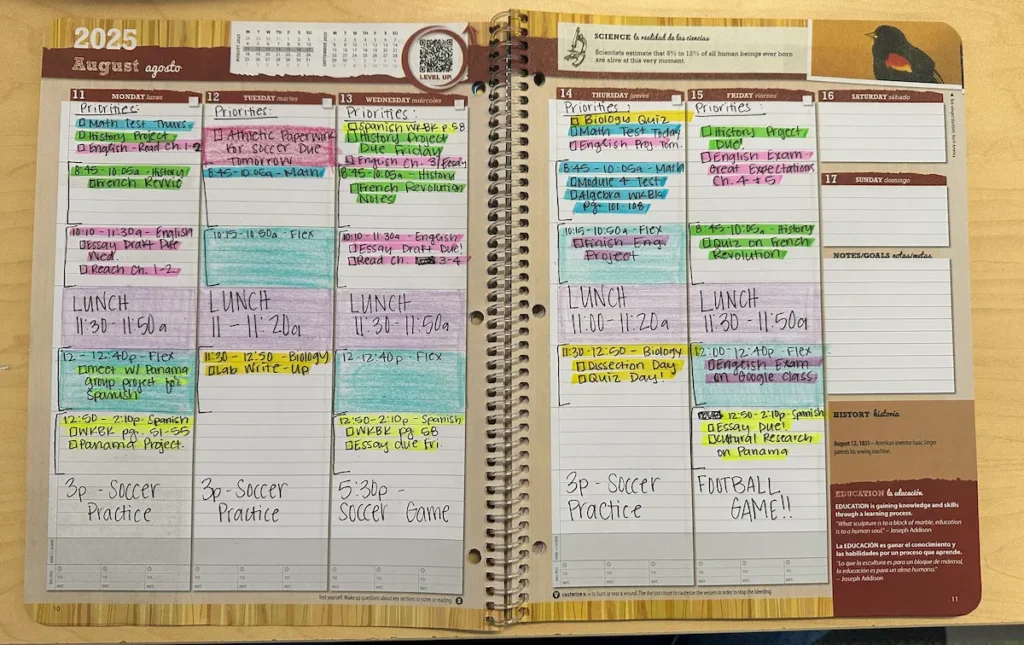 2025
August agosto
LEVEL UP
11 MONDAY lunes
Priorities:
Math Test Thurs.
History Project
English - Read Ch. 1-2
8:45 - 10:05a - History
French Revolo
10:10 - 11:30a - English
Essay Draft Due
Wed.
Reach Ch. 1-2
LUNCH
11:30 - 11:50a
12 - 12:40p - Flex
meet w/ Panama
group project for
Spanish
12:50 - 2:10p - Spanish
WKBK pg. 51-55
Panama Project.
3p - Soccer
Practice
12 TUESDAY martes
Priorities:
Athletic Paperwork
for Soccer Due
Tomorrow
8:45 - 10:05a - Math
10:15 - 10:50a - Flex
LUNCH
11 - 11:20a
11:30 - 12:50 - Biology
Lab Write-Up
3p - Soccer
Practice
13 WEDNESDAY miércoles
Priorities:
Spanish WKBK p 58
History Project
Due Friday
English Ch. 3/Essay
8:45 - 10:05a - History
French Revolution
Notes
10:10 - 11:30a - English
Essay Draft Due!
Read Ch. 3-4
LUNCH
11:30 - 11:50a
12 - 12:40p - Flex
12:50 - 2:10p - Spanish
WKBK pg 58
Essay due Fri.
5:30p -
Soccer Game
Test yourself. Make up questions about key sections or notes or reading.
10
SCIENCE la realidad de las ciencias
Scientists estimate that 6% to 12% of all human beings ever born
are alive at this very moment.
14 THURSDAY jueves
Priorities:
Biology Quiz
Math Test Today
English Proj Tom.
8:45 - 10:05a - Math
Module 4 Test
Algebra WKBK
pg. 101-108
10:15 - 10:50a - Flex
Finish Eng.
Project
LUNCH
11:00 - 11:20a
11:30 - 12:50a - Biology
Dissection Day
Quiz Day!
3p - Soccer
Practice
15 FRIDAY viernes
Priorities:
History Project
Due!
English Exam
Great Expectations
Ch. 4 + 5
8:45 - 10:05a - History
Quiz on French
Revolution
LUNCH
11:30 - 11:50a
12:00 - 12:40p - Flex
English Exam
on Google Class
12:50 - 2:10p - Spanish
Essay Due!
Cultural Research
on Panama
FOOTBALL
GAME!!
16 SATURDAY sábado
17 SUNDAY domingo
NOTES/GOALS notas/metas
HISTORY historia
August 12, 1851 – American inventor Isaac Singer
patents his sewing machine.
EDUCATION la educación
EDUCATION is gaining knowledge and skills
through a learning process.
"What sculpture is to a block of marble, education
is to a human soul." – Joseph Addison
La EDUCACIÓN es ganar el conocimiento y
las habilidades por un proceso que aprende.
"Lo que la escultura es para un bloque de mármol,
la educación es para un alma humana."
– Joseph Addison
cauterize v. = to burn or sear a wound. The doctors chose to cauterize the vessels in order to stop the bleeding.
11